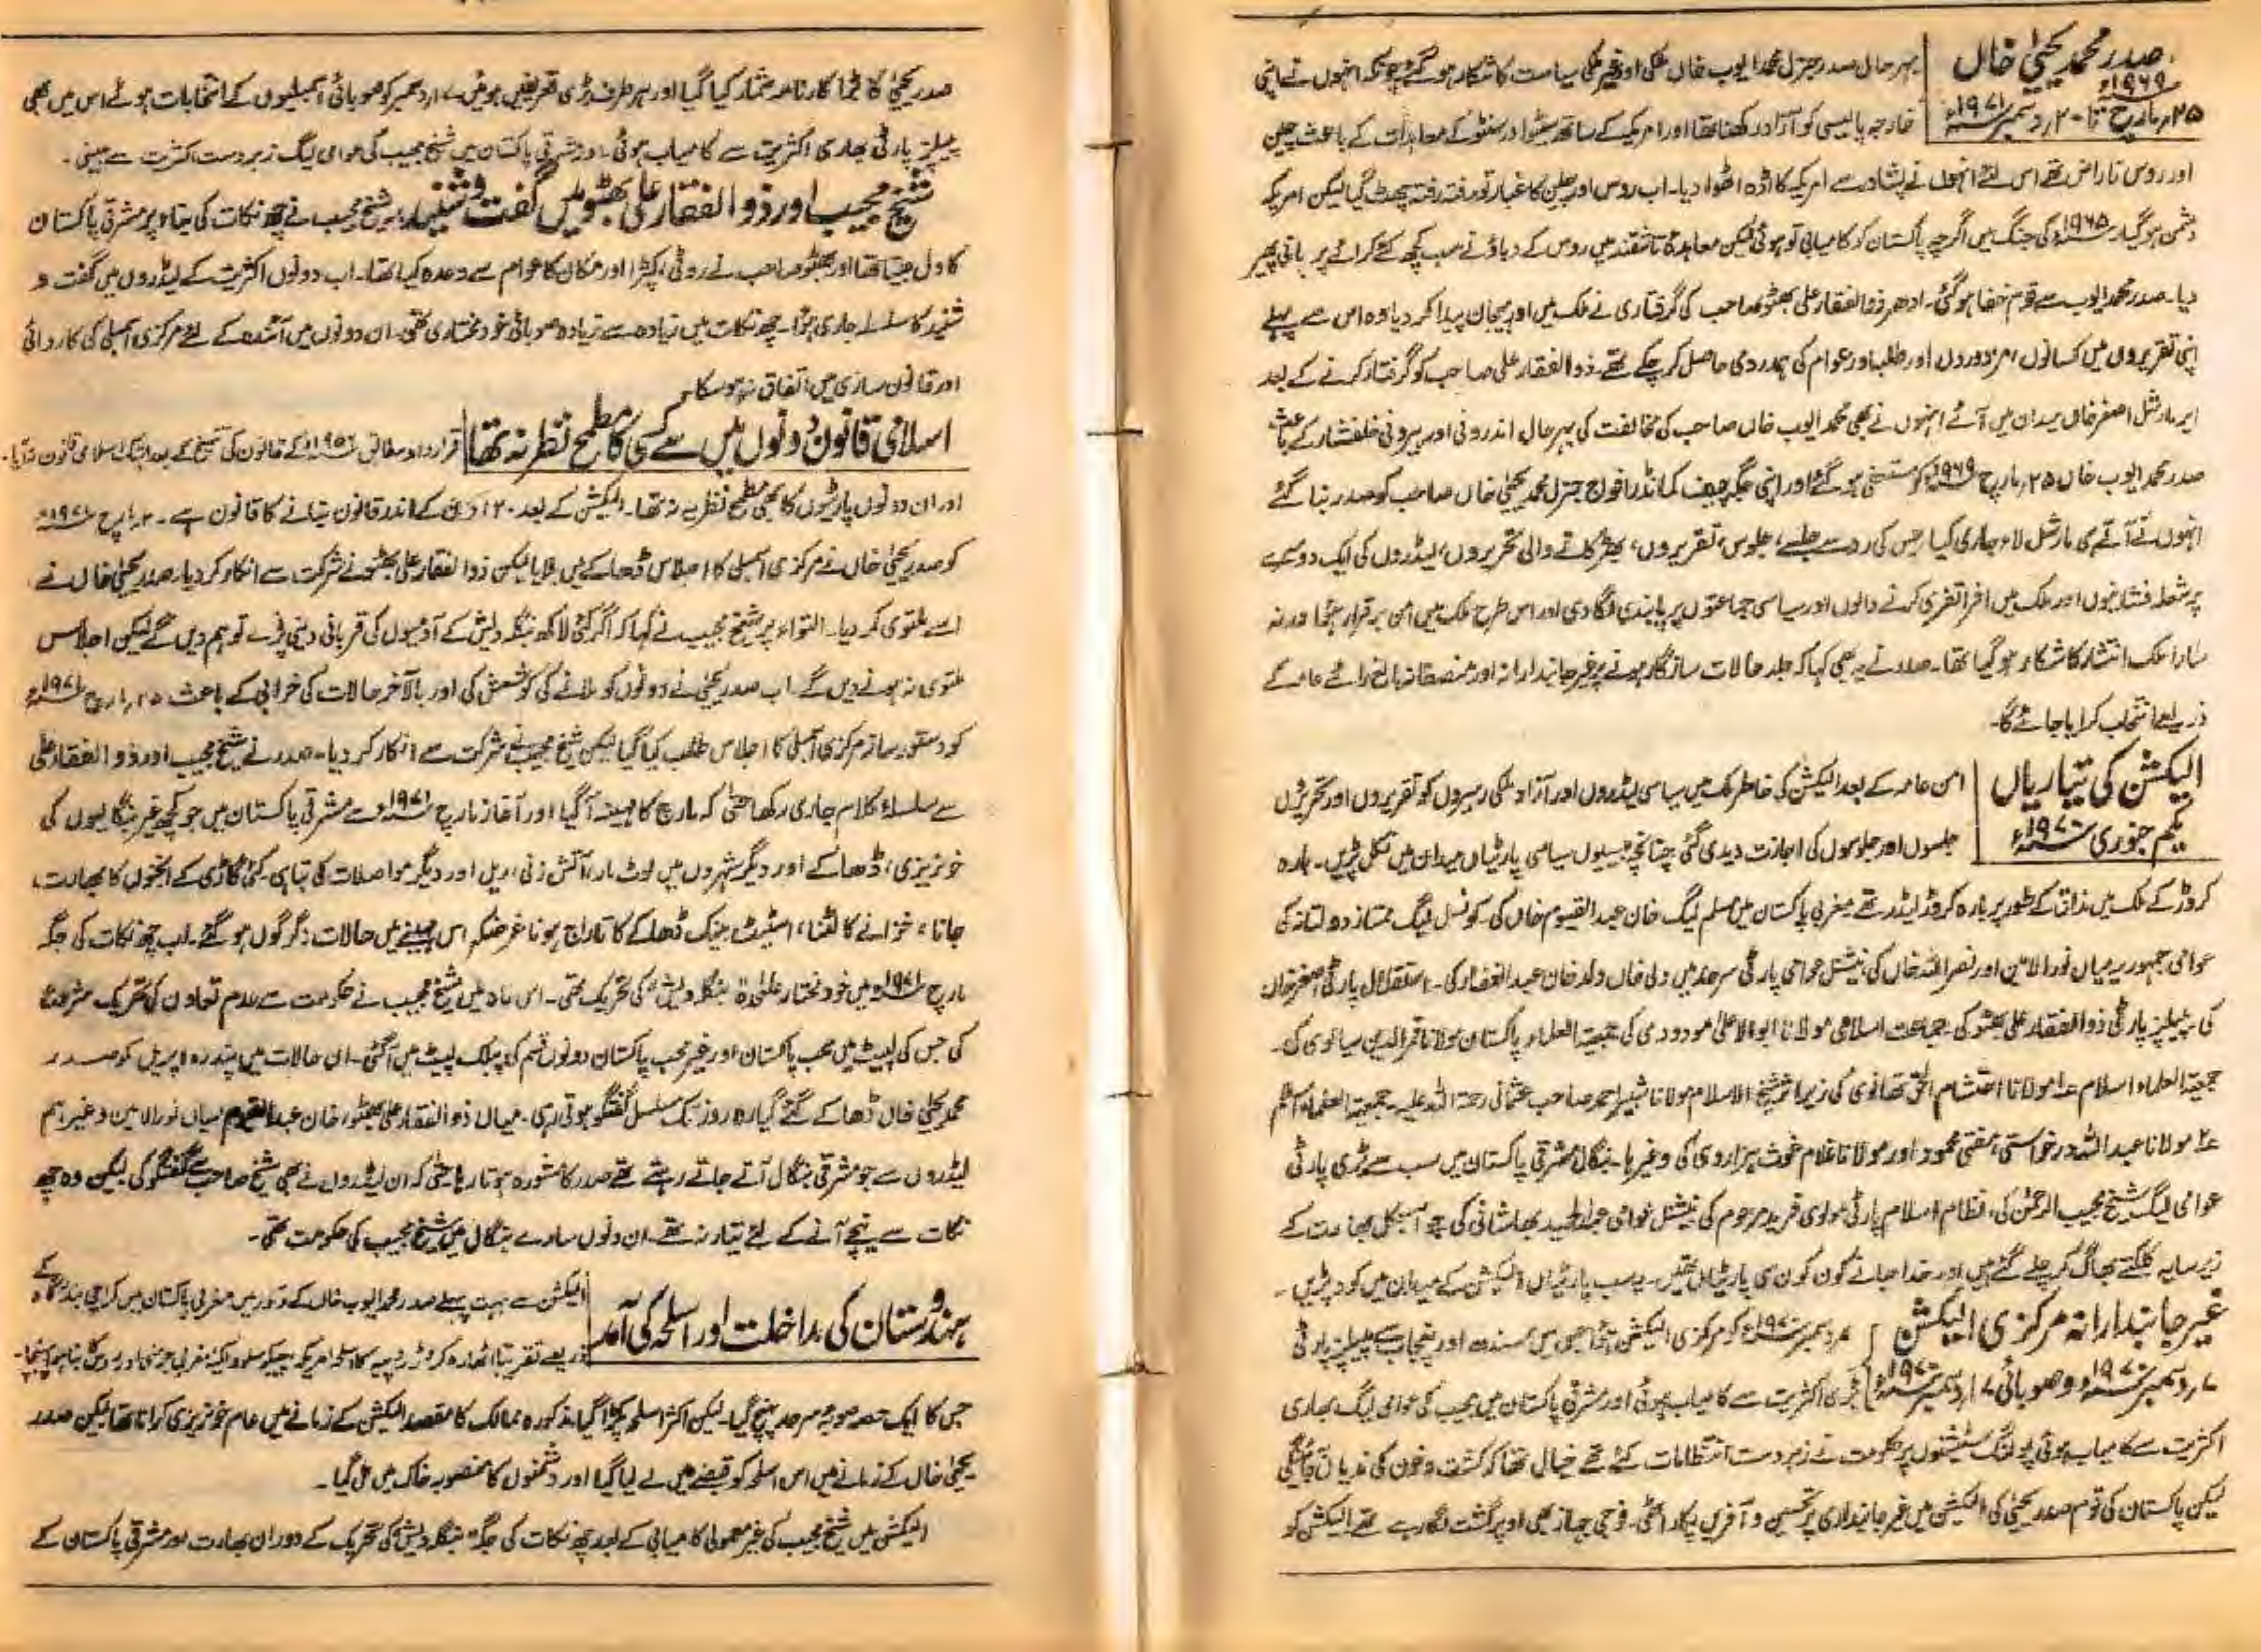 صدر محمد یحییٰ خاں
۱۹۶۹ء
۲۵ مارچ تا ۲۰ دسمبر ۱۹۷۱ء
بہرحال صدر جنرل محمد ایوب خاں ملکی اور غیر ملکی سیاست کا شکار ہو گئے چونکہ انہوں نے اپنی
خارجہ پالیسی کو آزاد رکھنا تھا اور امریکہ کے ساتھ سیٹو اور سنٹو کے معاہدات کے باعث چین
اور روس ناراض تھے اس لئے انہوں نے پشاور سے امریکہ کا اڈہ اٹھوا دیا۔ اب روس اور چین کا غبار تو رفتہ رفتہ چھٹ گیا لیکن امریکہ
دشمن ہو گیا۔ ۱۹۶۵ء کی جنگ میں اگرچہ پاکستان کو کامیابی تو ہوئی لیکن معاہدۂ تاشقند میں روس کے دباؤ نے سب کچھ کئے کرائے پر پانی پھیر
دیا۔ صدر محمد ایوب سے قوم خفا ہو گئی۔ ادھر ذوالفقار علی بھٹو صاحب کی گرفتاری نے ملک میں اور ہیجان پیدا کر دیا وہ اس سے پہلے
اپنی تقریروں میں کسانوں، مزدوروں اور طلبا اور عوام کی ہمدردی حاصل کر چکے تھے۔ ذوالفقار علی صاحب کو گرفتار کرنے کے بعد
ایر مارشل اصغر خاں میدان میں آئے انہوں نے بھی محمد ایوب خاں صاحب کی مخالفت کی بہرحال اندرونی اور بیرونی خلفشار کے باعث
صدر محمد ایوب خاں ۲۵ مارچ ۱۹۶۹ء کو مستعفی ہو گئے اور اپنی جگہ چیف کمانڈر افواج جنرل محمد یحییٰ خاں صاحب کو صدر بنا گئے
انہوں نے آتے ہی مارشل لاء جاری کیا جس کی رو سے جلسے، جلوس، تقریروں، بھڑکانے والی تحریروں، لیڈروں کی ایک دوسرے
پر شعلہ فشانیوں اور ملک میں افراتفری کرنے والوں اور سیاسی جماعتوں پر پابندی لگا دی اور اس طرح ملک میں امن برقرار ہوا ورنہ
سارا ملک انتشار کا شکار ہو گیا تھا۔ صدر نے یہ بھی کہا کہ جلد حالات سازگار ہونے پر غیر جانبدارانہ اور منصفانہ بالغ رائے عامہ کے
ذریعے انتخاب کرایا جائے گا۔
الیکشن کی تیاریاں
یکم جنوری ۱۹۷۰ء
امن عامہ کے بعد الیکشن کی خاطر ملک میں سیاسی لیڈروں اور آزاد ملکی رہبروں کو تقریروں اور تحریروں
جلسوں اور جلوسوں کی اجازت دیدی گئی چنانچہ بیسیوں سیاسی پارٹیاں میدان میں نکل پڑیں۔ بارہ
کروڑ کے ملک میں مذاق کے طور پر بارہ کروڑ لیڈر تھے مغربی پاکستان میں مسلم لیگ خان عبدالقیوم خاں کی۔ کونسل لیگ ممتاز دولتانہ کی
عوامی جمہوریہ میاں نورالامین اور نصراللہ خاں کی، نیشنل عوامی پارٹی سرحد میں ولی خاں ولد خان عبدالغفار کی۔ استقلال پارٹی اصغر خاں
کی، پیپلز پارٹی ذوالفقار علی بھٹو کی۔ جماعت اسلامی مولانا ابوالاعلیٰ مودودی کی جمیعۃ العلماء پاکستان مولانا قمرالدین سیالوی کی۔
جمیعۃ العلماء اسلام ۱ مولانا احتشام الحق تھانوی کی زیر اثر شیخ الاسلام مولانا شبیر احمد صاحب عثمانی رحمۃ اللہ علیہ۔ جمیعۃ العلماء اسلام
۲ مولانا عبداللہ درخواستی، مفتی محمود اور مولانا غلام غوث ہزاروی کی وغیرہا۔ بنگال مشرقی پاکستان میں سب سے بڑی پارٹی
عوامی لیگ شیخ مجیب الرحمٰن کی، نظام اسلام پارٹی مولوی فرید مرحوم کی نیشنل عوامی عبدالحمید بھاشانی کی جو آجکل بھارت کے
زیر سایہ کلکتے بھاگ کر چلے گئے ہیں اور خدا جانے کون کون سی پارٹیاں تھیں۔ یہ سب پارٹیاں الیکشن کے میدان میں کود پڑیں۔
غیر جانبدارانہ مرکزی الیکشن
۷ دسمبر ۱۹۷۰ء و صوبائی ۱۷ دسمبر ۱۹۷۰ء
۷ دسمبر ۱۹۷۰ء کو مرکزی الیکشن ہوا جس میں سندھ اور پنجاب سے پیپلز پارٹی
بڑی اکثریت سے کامیاب ہوئی اور مشرقی پاکستان میں مجیب کی عوامی لیگ بھاری
اکثریت سے کامیاب ہوئی پولنگ سٹیشنوں پر حکومت نے زبردست انتظامات کئے تھے خیال تھا کہ کشت و خون کی ندیاں
لیکن پاکستان کی قوم صدر یحییٰ کی الیکشن میں غیر جانبداری پر تحسین و آفرین پکار اٹھی۔ فوجی جہاز بھی اوپر گشت لگا رہے تھے الیکشن کو
صدر یحییٰ کا بڑا کارنامہ شمار کیا گیا اور ہر طرف بڑی تعریفیں ہوئیں۔ ۱۷ دسمبر کو صوبائی اسمبلیوں کے انتخابات ہوئے اس میں بھی
پیپلز پارٹی بھاری اکثریت سے کامیاب ہوئی۔ اور مشرقی پاکستان میں شیخ مجیب کی عوامی لیگ زبردست اکثریت سے جیتی۔
شیخ مجیب اور ذوالفقار علی بھٹو میں گفت و شنید
شیخ مجیب نے چھ نکات کی بناء پر مشرقی پاکستان
کا دل جیتا تھا اور بھٹو صاحب نے روٹی، کپڑا اور مکان کا عوام سے وعدہ کیا تھا۔ اب دونوں اکثریت کے لیڈروں میں گفت و
شنید کا سلسلہ جاری ہوا۔ چھ نکات میں زیادہ سے زیادہ صوبائی خود مختاری تھی۔ ان دونوں میں آئندہ کے لئے مرکزی اسمبلی کی کاروائی
اور قانون سازی میں اتفاق نہ ہو سکا۔
اسلامی قانون دونوں میں سے کسی کا مطمح نظر نہ تھا
قرارداد مقاصد ۱۹۵۶ء کے قانون کی تنسیخ کے بعد ابتک اسلامی قانون نہ آیا۔
اور ان دونوں پارٹیوں کا بھی مطمح نظر یہ نہ تھا۔ الیکشن کے بعد ۱۲۰ دن کے اندر قانون بنانے کا قانون ہے۔ مارچ ۱۹۷۱ء
کو صدر یحییٰ خاں نے مرکزی اسمبلی کا اجلاس ڈھاکے میں بلایا لیکن ذوالفقار علی بھٹو نے شرکت سے انکار کر دیا۔ صدر یحییٰ خاں نے
اسے ملتوی کر دیا۔ التواء پر شیخ مجیب نے کہا کہ اگر کئی لاکھ بنگلہ دیش کے آدمیوں کی قربانی دینی پڑے تو ہم دیں گے لیکن اجلاس
ملتوی نہ ہونے دیں گے۔ اب صدر یحییٰ نے دونوں کو ملانے کی کوشش کی اور بالآخر حالات کی خرابی کے باعث ۲۵ مارچ ۱۹۷۱ء
کو دستور ساز مرکزی اسمبلی کا اجلاس طلب کیا گیا لیکن شیخ مجیب نے شرکت سے انکار کر دیا۔ صدر نے شیخ مجیب اور ذوالفقار علی
سے سلسلۂ کلام جاری رکھا حتیٰ کہ مارچ کا مہینہ آ گیا اور آغاز مارچ ۱۹۷۱ء سے مشرقی پاکستان میں جو کچھ غیر بنگالیوں کی
خونریزی، ڈھاکے اور دیگر شہروں میں لوٹ مار، آتش زنی، ریل اور دیگر مواصلات کی تباہی، کئی گاڑی کے انجنوں کا بھارت،
جانا، خزانے کا لٹنا، اسٹیٹ بینک ڈھاکے کا تاراج ہونا غرضکہ اس مہینے میں حالات دگرگوں ہو گئے۔ اب چھ نکات کی جگہ
مارچ ۱۹۷۱ء میں خود مختار علیٰحدہ "بنگلہ دیش" کی تحریک تھی۔ اس ماہ میں شیخ مجیب نے حکومت سے عدم تعاون کی تحریک شروع
کی جس کی لپیٹ میں محب پاکستان اور غیر محب پاکستان دونوں قسم کی پبلک لپیٹ میں آگئی۔ ان حالات میں پندرہ اپریل کو صدر
محمد یحییٰ خاں ڈھاکے گئے گیارہ روز تک مسلسل گفتگو ہوتی رہی۔ میاں ذوالفقار علی بھٹو، خان عبدالقیوم میاں نورالامین وغیراہم
لیڈروں سے جو مشرقی بنگال آتے جاتے رہتے تھے صدر کا مشورہ ہوتا رہا حتیٰ کہ ان لیڈروں نے بھی شیخ صاحب سے گفتگو کی لیکن وہ چھ
نکات سے نیچے آنے کے لئے تیار نہ تھے۔ ان دنوں سارے بنگال میں شیخ مجیب کی حکومت تھی۔
ہندوستان کی مداخلت اور اسلحہ کی آمد
الیکشن سے بہت پہلے صدر محمد ایوب خاں کے دور میں مغربی پاکستان میں کراچی بندرگاہ کے
ذریعے تقریباً اٹھارہ کروڑ روپیہ کا اسلحہ امریکہ، چیکوسلوواکیہ مغربی جرمنی اور روس کا
جس کا ایک حصہ صوبہ سرحد پہنچ گیا۔ لیکن اکثر اسلحہ پکڑا گیا، مذکورہ ممالک کا مقصد الیکشن کے زمانے میں عام خونریزی کرانا تھا لیکن صدر
یحییٰ خاں کے زمانے میں اس اسلحہ کو قبضے میں لے لیا گیا اور دشمنوں کا منصوبہ خاک میں مل گیا۔
الیکشن میں شیخ مجیب کی غیر معمولی کامیابی کے بعد چھ نکات کی جگہ "بنگلہ دیش" کی تحریک کے دوران بھارت اور مشرقی پاکستان کے